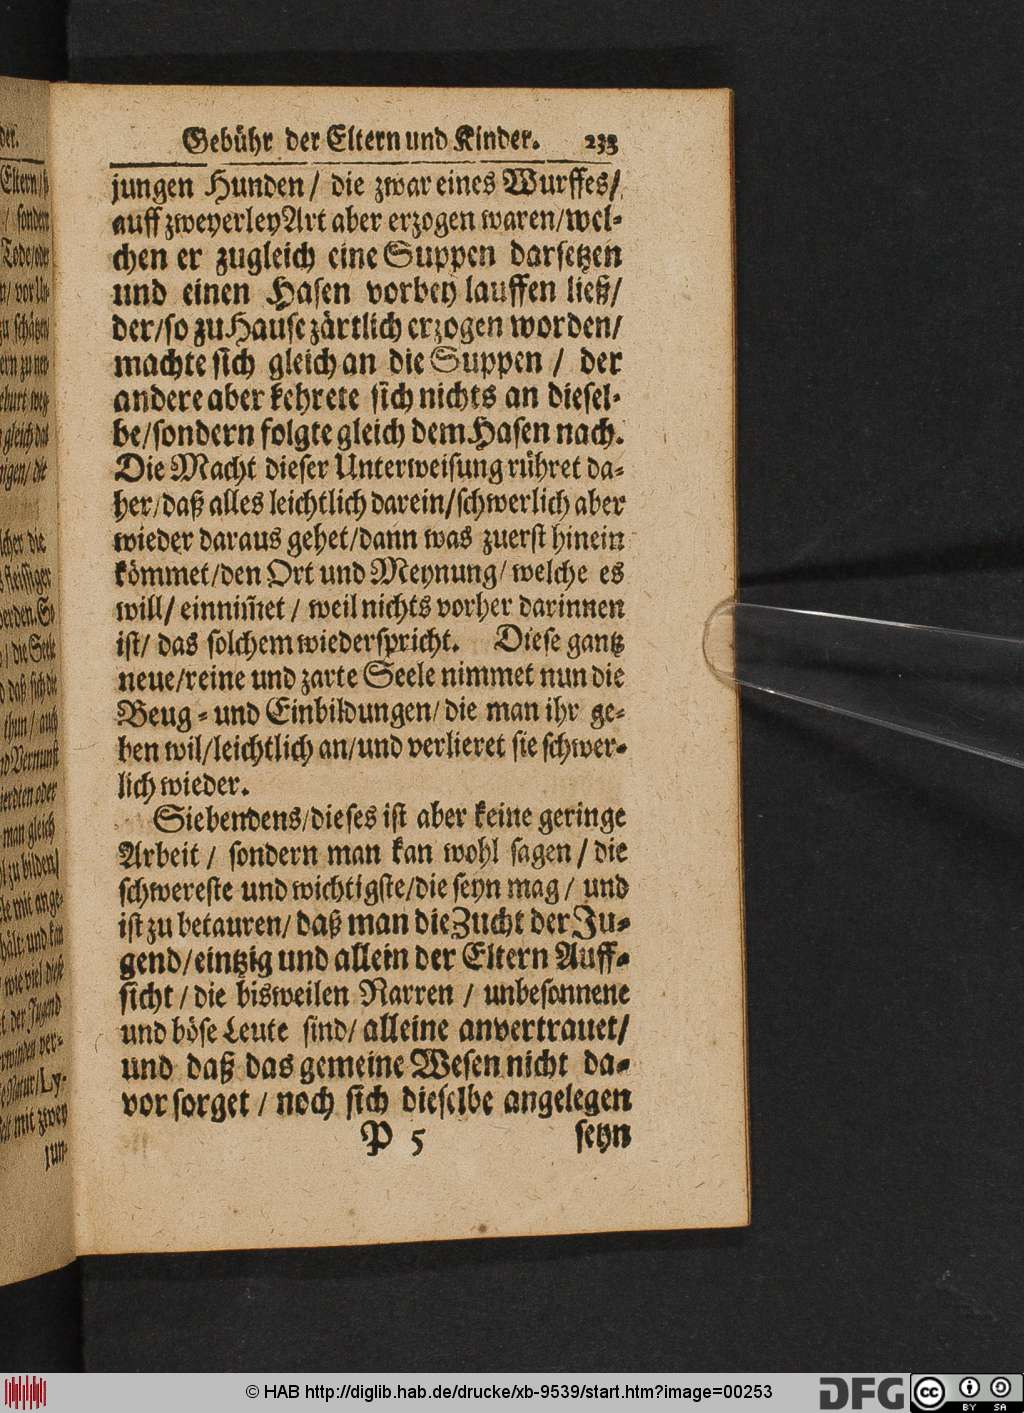 Gebühr der Eltern und Kinder. 233
jungen Hunden / die zwar eines Wurffes /
auff zweyerley Art aber erzogen waren / wel-
chen er zugleich eine Suppen darsetzen
und einen Hasen vorbey lauffen ließ /
der / so zu Hause zärtlich erzogen worden /
machte sich gleich an die Suppen / der
andere aber kehrete sich nichts an diesel-
be / sondern folgte gleich dem Hasen nach.
Die Macht dieser Unterweisung rühret da-
her / daß alles leichtlich darein / schwerlich aber
wieder daraus gehet / dann was zuerst hinein
kömmet / den Ort und Meynung / welche es
will / einnim̃et / weil nichts vorher darinnen
ist / das solchem wiederspricht. Diese gantz
neue / reine und zarte Seele nimmet nun die
Beug- und Einbildungen / die man ihr ge-
ben wil / leichtlich an / und verlieret sie schwer-
lich wieder.
Siebendens / dieses ist aber keine geringe
Arbeit / sondern man kan wohl sagen / die
schwereste und wichtigste / die seyn mag / und
ist zu betauren / daß man die Zucht der Ju-
gend / eintzig und allein der Eltern Auff-
sicht / die bisweilen Narren / unbesonnene
und böse Leute sind / alleine anvertrauet /
und daß das gemeine Wesen nicht da-
vor sorget / noch sich dieselbe angelegen
P 5 seyn
© HAB http://diglib.hab.de/drucke/xb-9539/start.htm?image=00253
DFG
cc BY SA